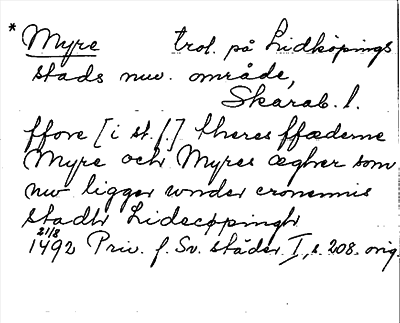 * Myre trol. på Lidköpings
stads nuv. område,
Skarab. l.
ffore [i st. f.] theres ffæderne
Myre och Myres æghor som
nw ligger wnder cronennis
stadh Lidecøpingh
21/8
1492 Priv. f. Sv. städer I, s. 208. orig.